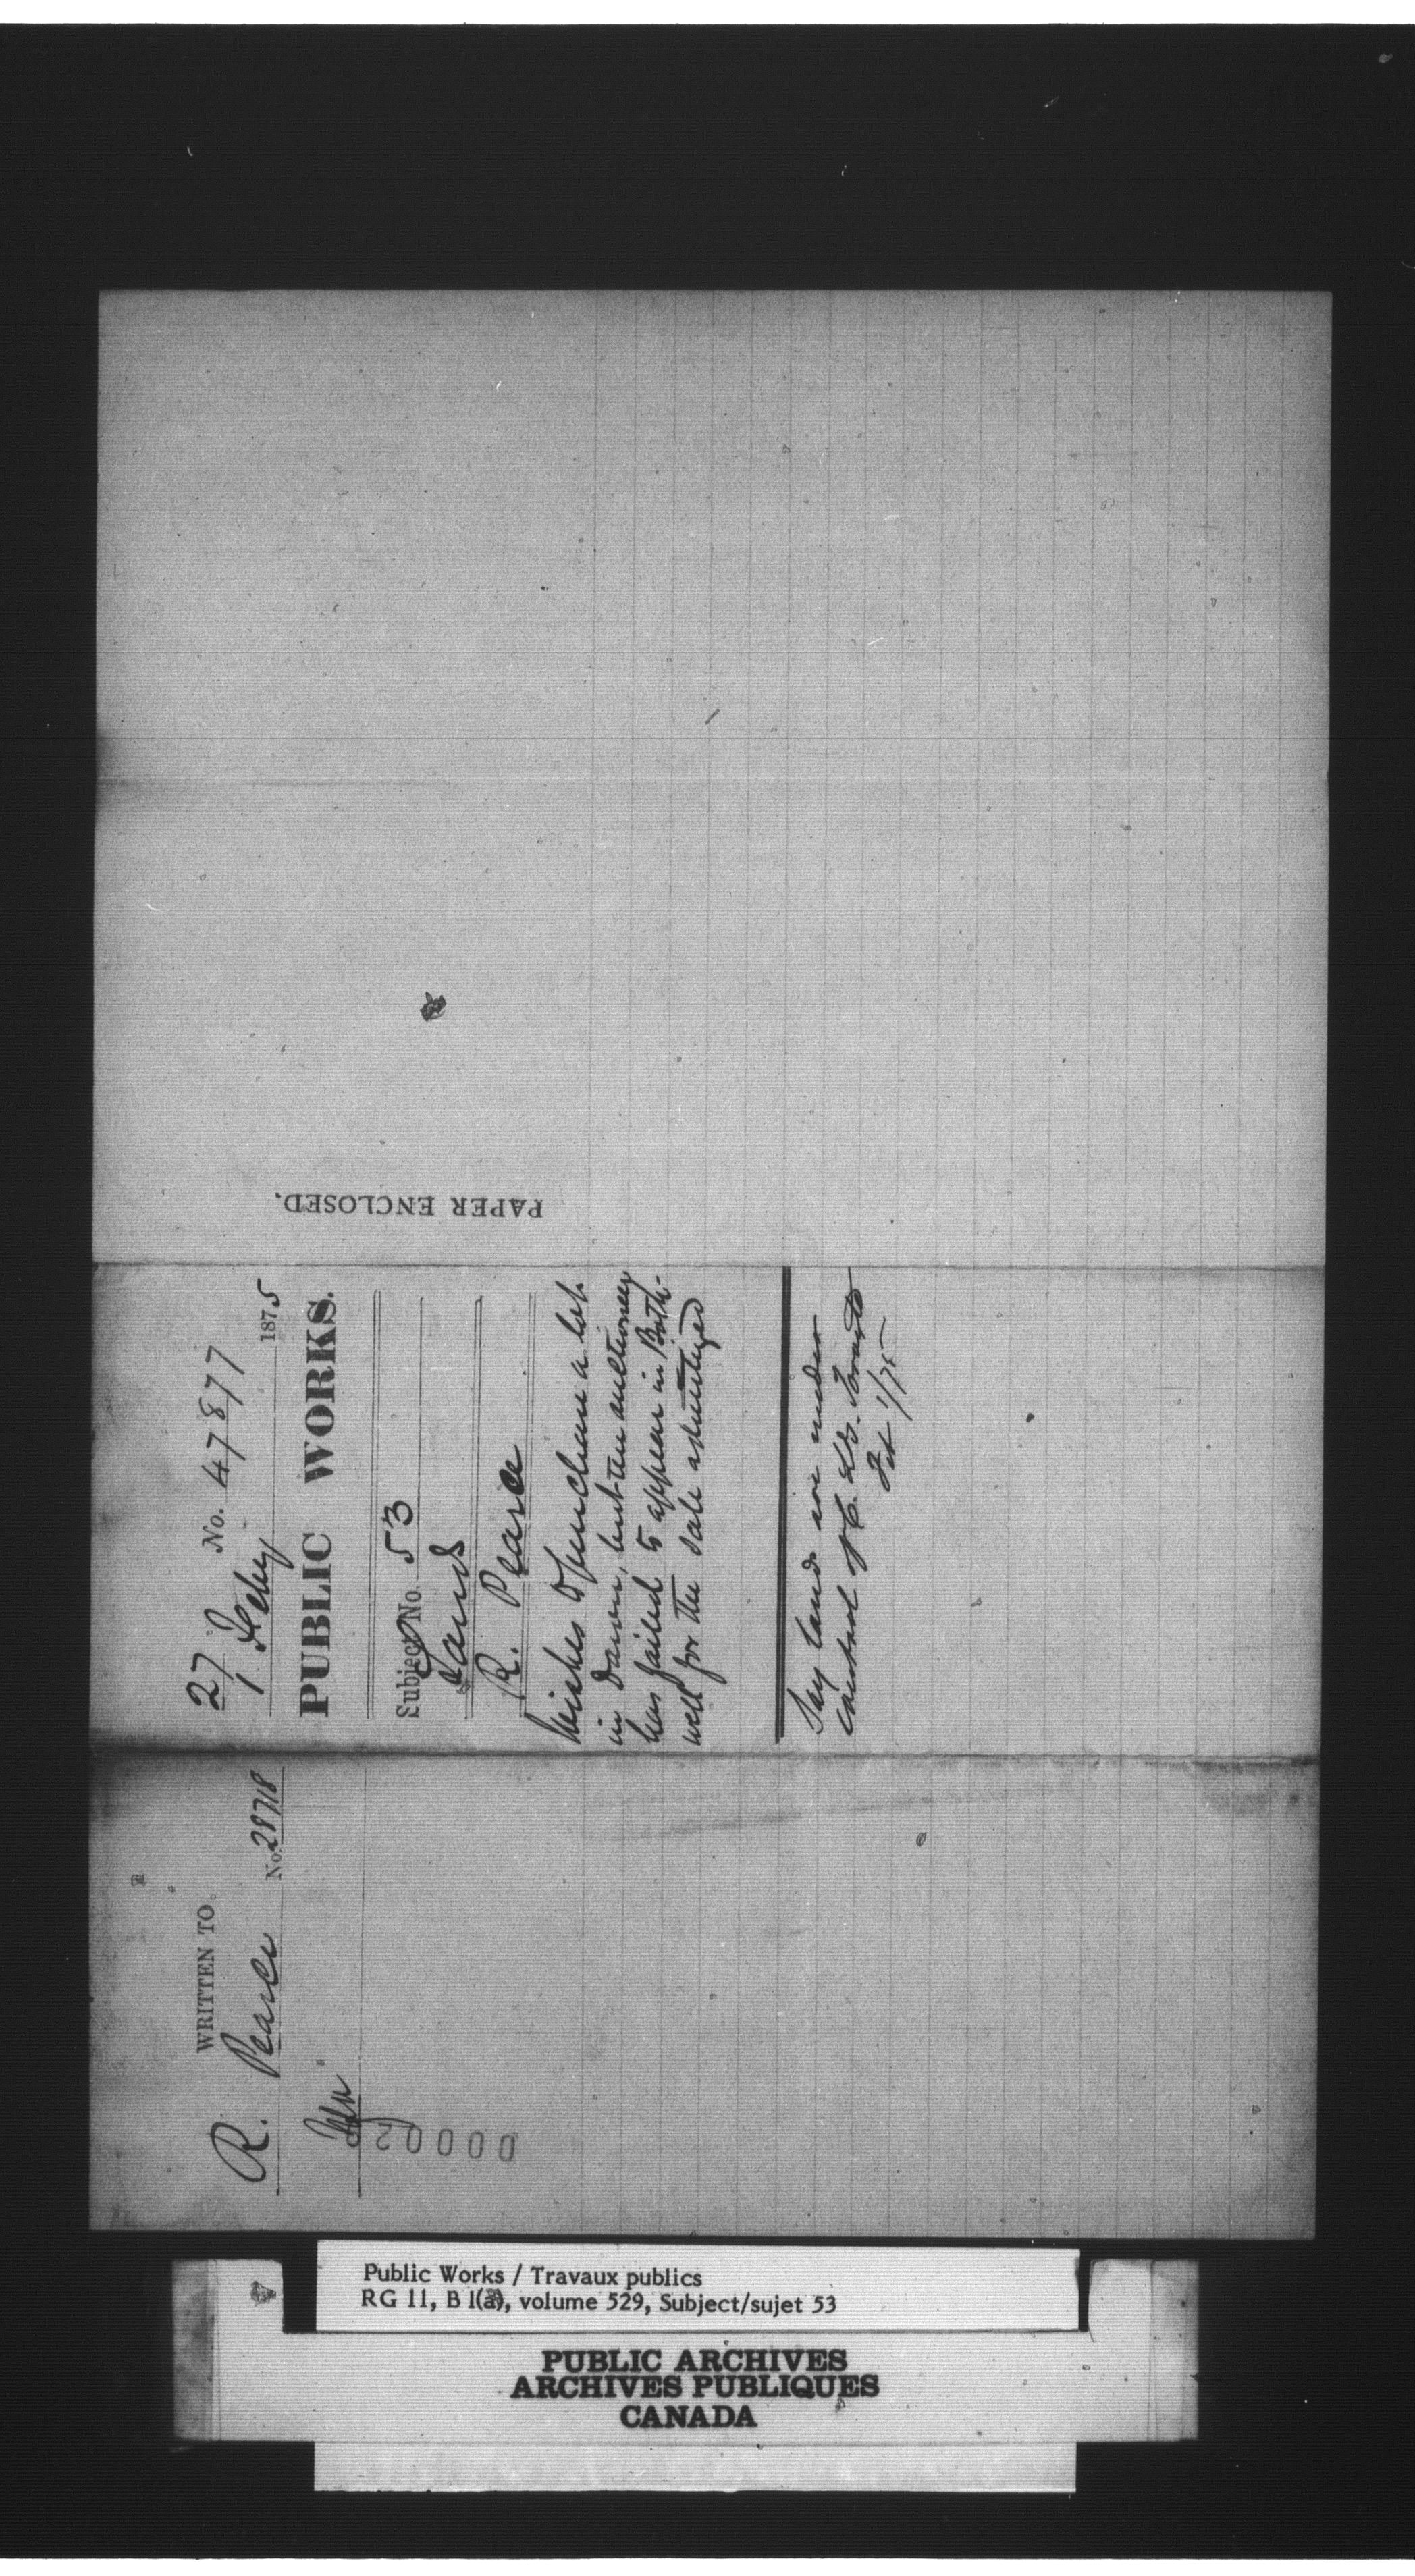 WRITTEN TO
R. Pearce No. 28718
00002
27 No. 47877
1 Feby 1875
PUBLIC WORKS.
Subject No. 53
Land
R. Pearce
Wishes to purchase a lot
in Dawn, but the auctioneer
has failed to appear in Both-
well for the sale advertized
Say lands are under
control of C. Toronto
Feb 1/75
PAPER ENCLOSED.
Public Works / Travaux publics
RG 11, B 1(a), volume 529, Subject/sujet 53
PUBLIC ARCHIVES
ARCHIVES PUBLIQUES
CANADA